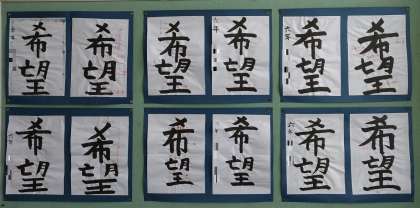 希望
希望
六年
希望
六年
希望
六年
希望
希望
六年
希望
希望
希望
希望
六年
希望
希望